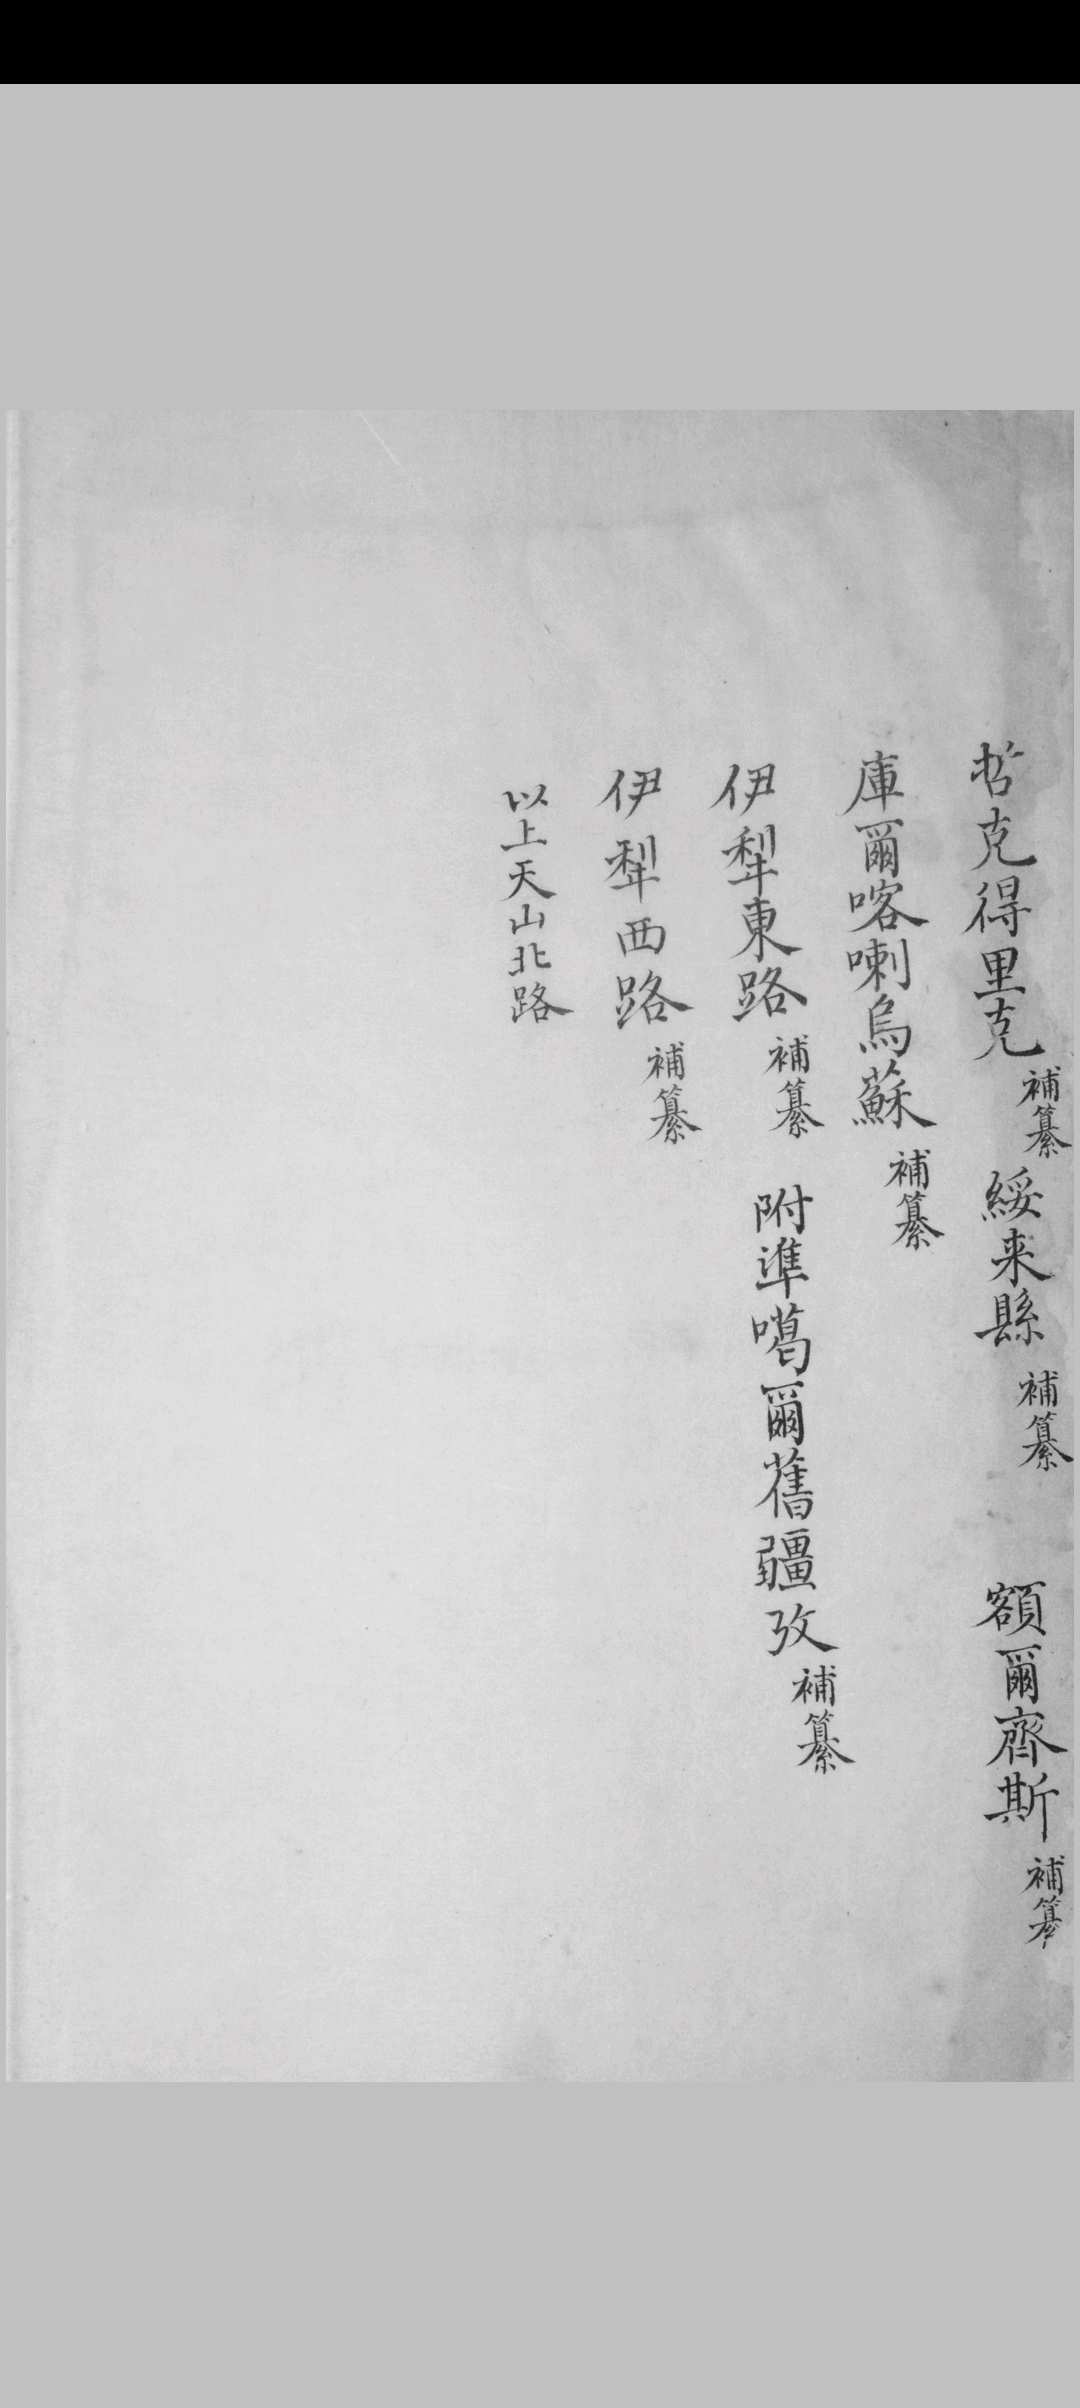 哲克得里克補纂 綏来縣補纂 額爾齊斯補纂
庫爾喀喇烏蘇補纂
伊犁東路補纂 附準噶爾舊疆攷補纂
伊犁西路補纂
以上天山北路